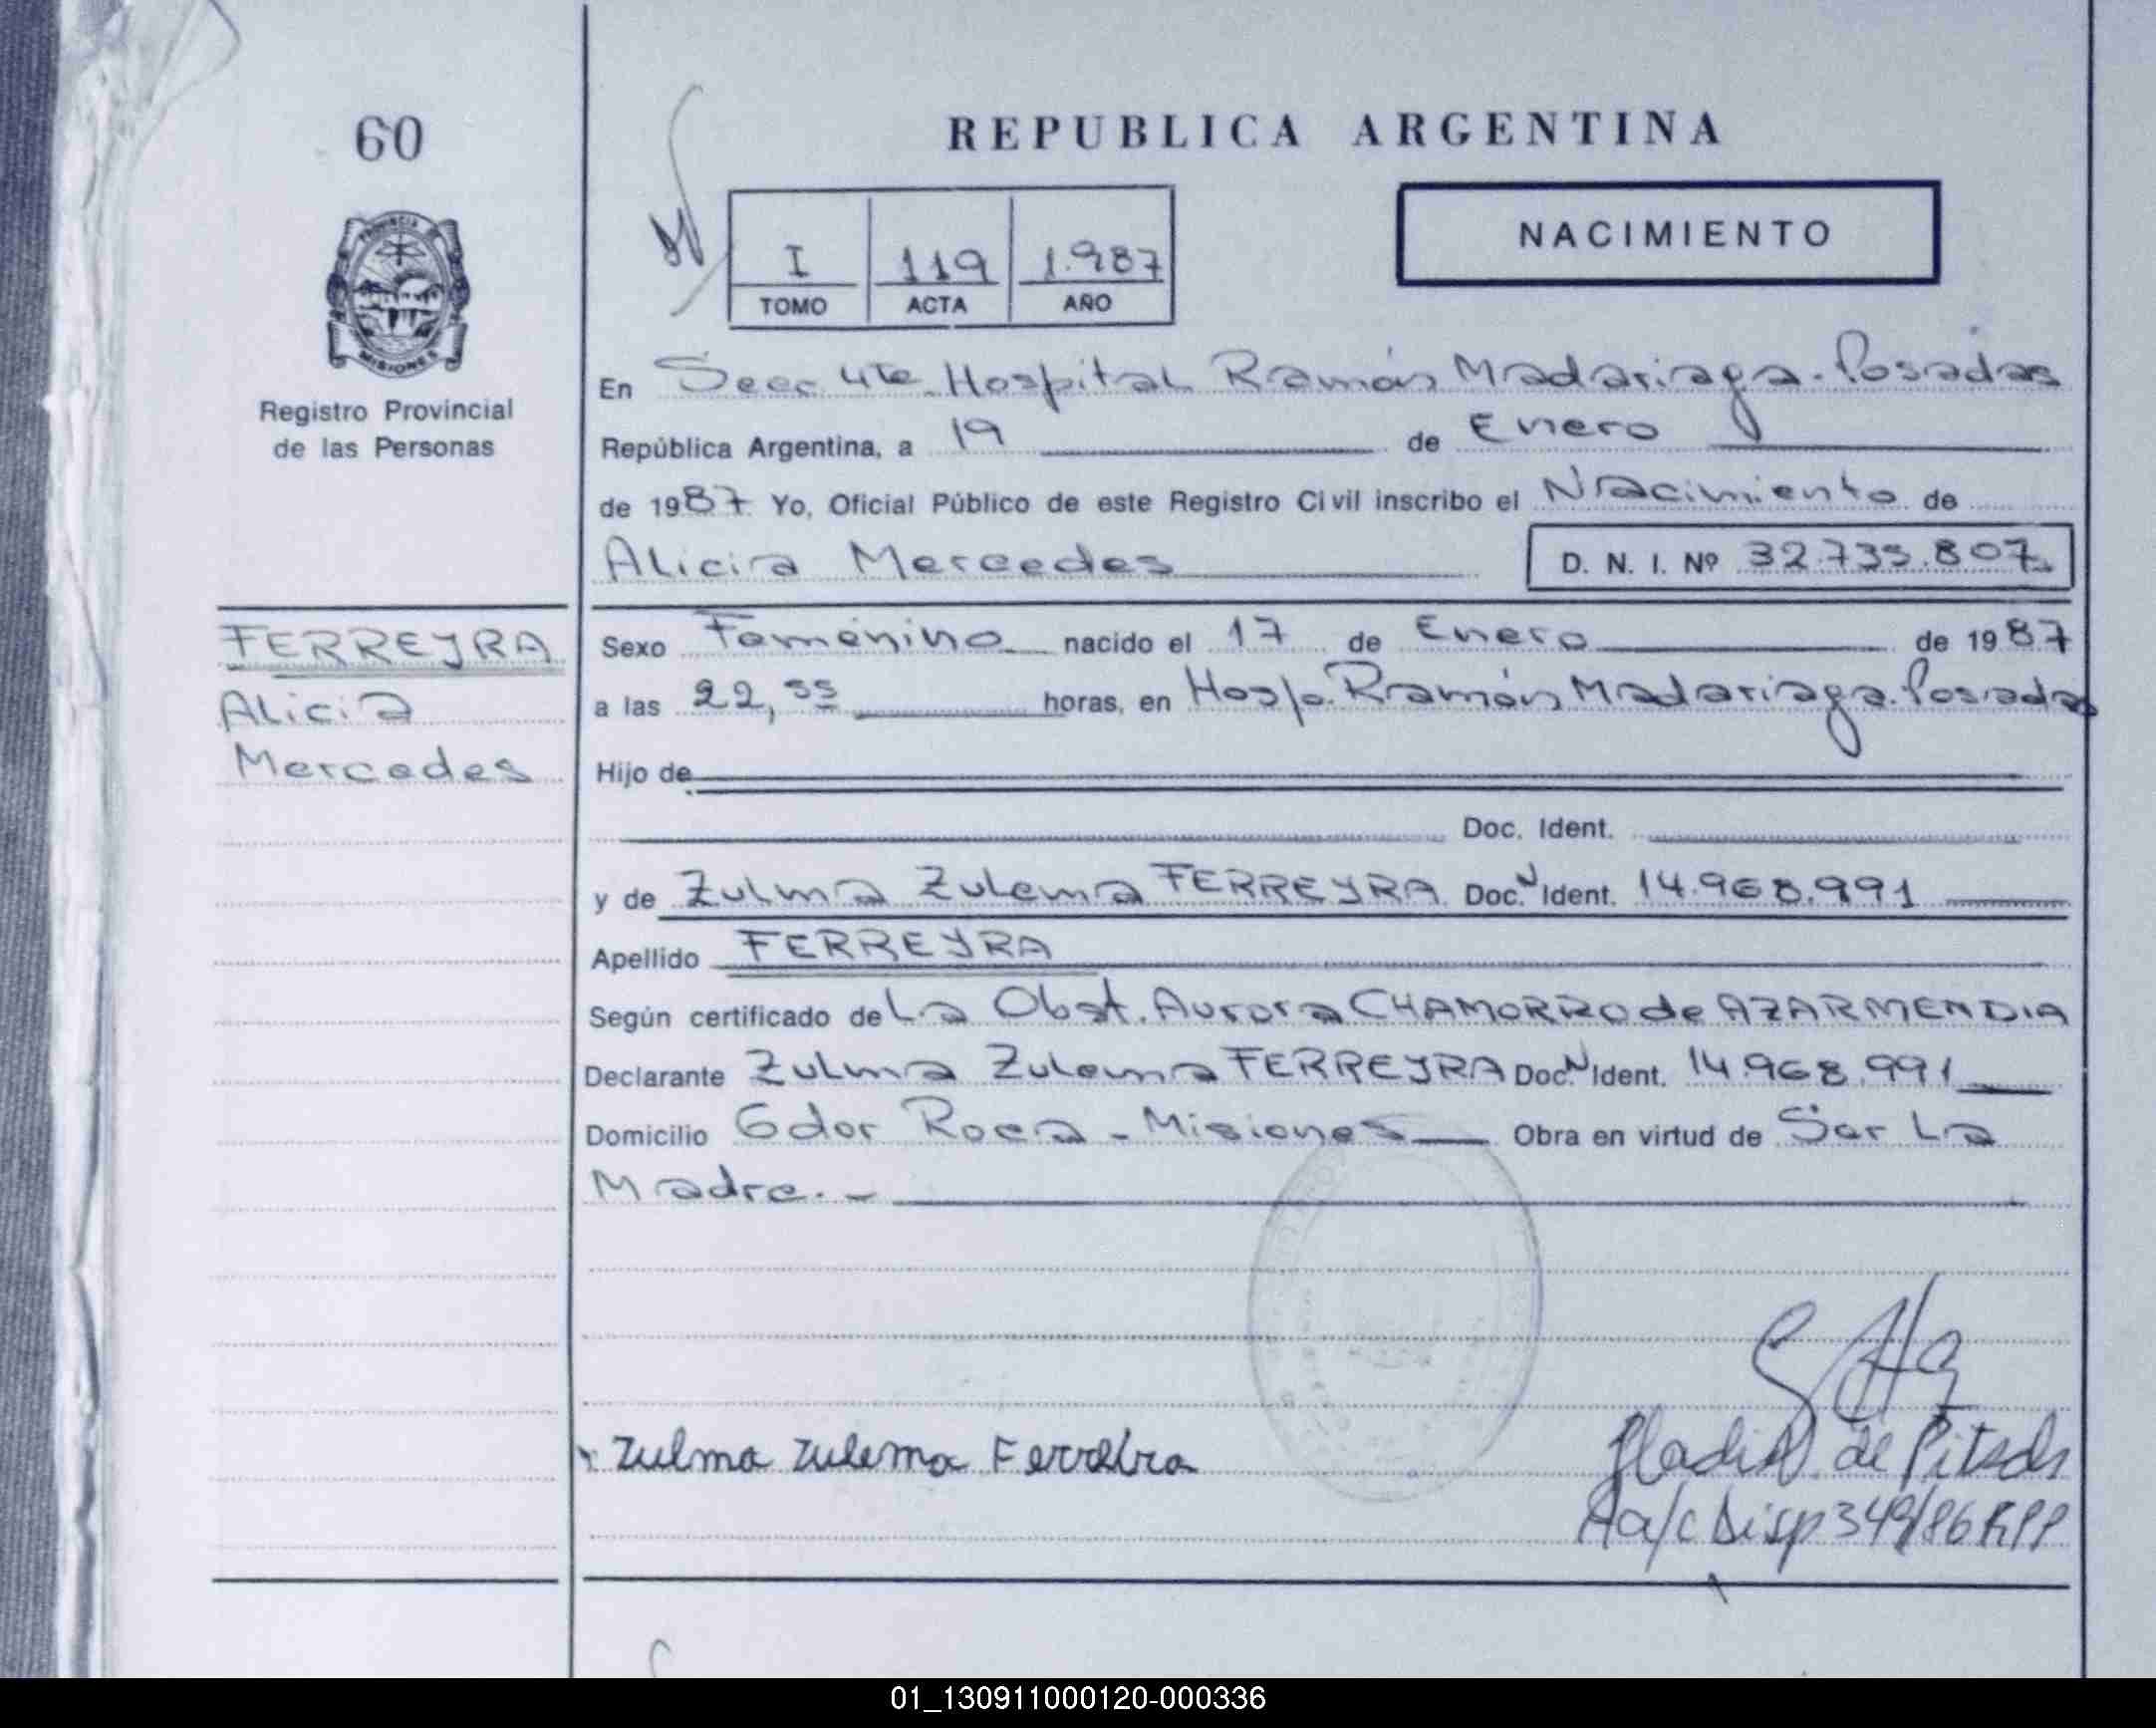 60
REPUBLICA ARGENTINA
NACIMIENTO
I 119 1.987
TOMO ACTA AÑO
PROVINCIA
MISIONES
Registro Provincial
de las Personas
En Secc. 4ta. Hospital Ramón Madariaga. Posadas
República Argentina, a 19 de Enero
de 1987 Yo, Oficial Público de este Registro Civil inscribo el Nacimiento de
Alicia Mercedes D. N. I. Nº 32.735.807
FERREYRA
Alicia
Mercedes
Sexo Femenino nacido el 17 de Enero de 1987
a las 22,55 horas, en Hosp. Ramón Madariaga. Posadas
Hijo de
Doc. Ident.
y de Zulma Zulema FERREYRA Doc. N Ident. 14.968.991
Apellido FERREYRA
Según certificado de La Obst. Aurora CHAMORRO de AZARMENDIA
Declarante Zulma Zulema FERREYRA Doc. N Ident. 14.968.991
Domicilio Gdor Roca - Misiones Obra en virtud de Ser La
Madre. -
Zulma Zulema Ferreira
de
a/c Disp 349/86 RPP
01_130911000120-000336